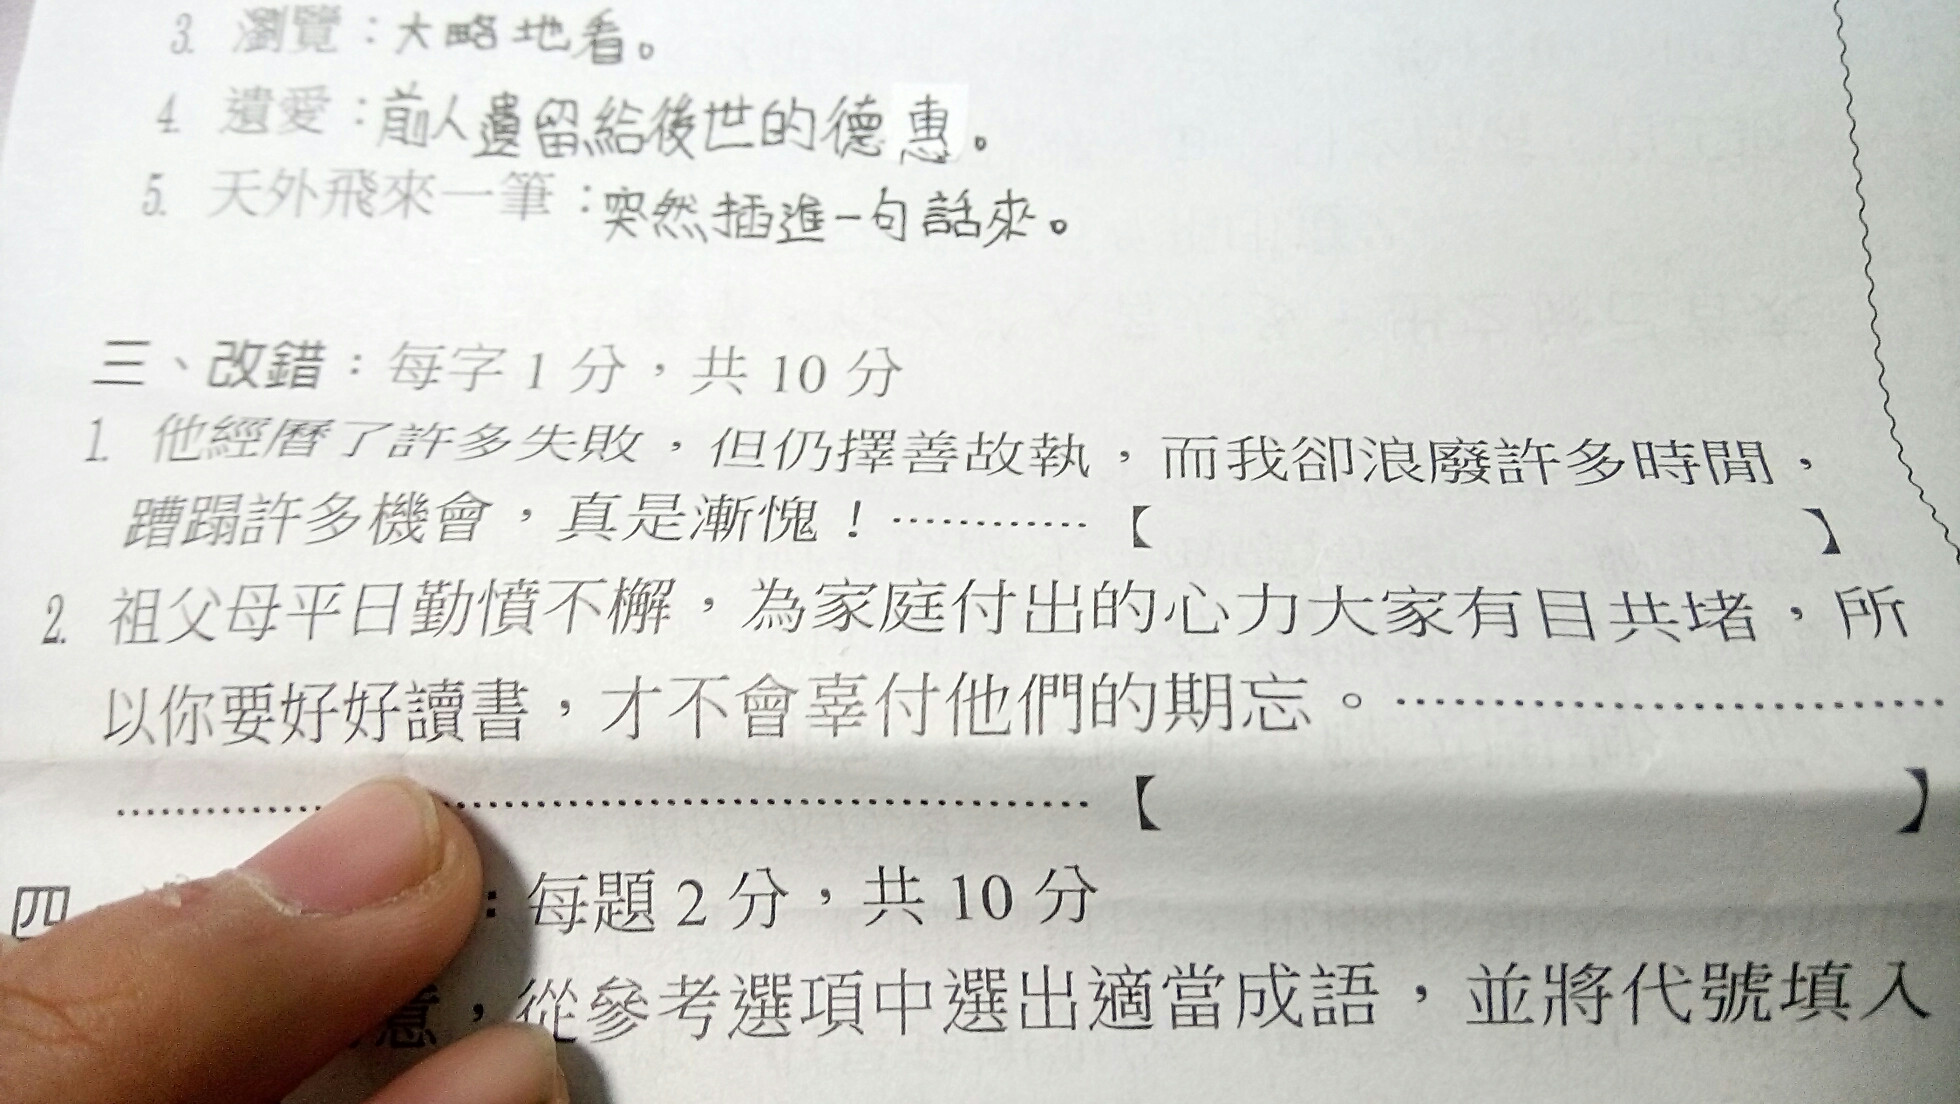 3. 瀏覽：大略地看。
4. 遺愛：前人遺留給後世的德惠。
5. 天外飛來一筆：突然插進一句話來。
三、改錯：每字1分，共10分
1. 他經曆了許多失敗，但仍擇善故執，而我卻浪廢許多時間，
蹧蹋許多機會，真是漸愧！…………【 】
2. 祖父母平日勤憤不檞，為家庭付出的心力大家有目共堵，所
以你要好好讀書，才不會辜付他們的期忘。…………………………
………………………………………【 】
四 ：每題2分，共10分
意，從參考選項中選出適當成語，並將代號填入